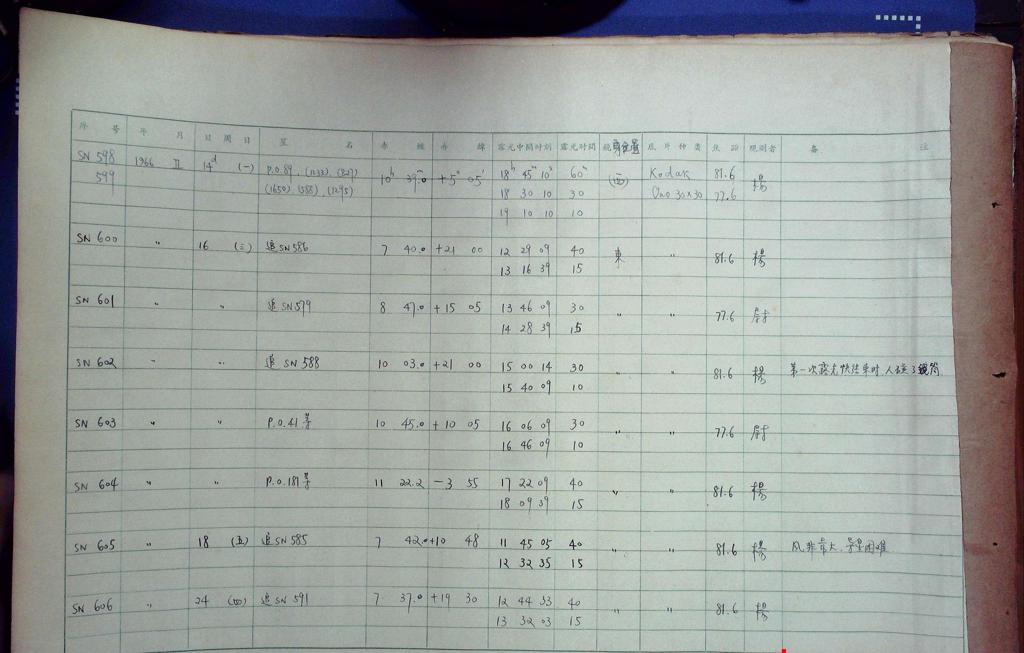 序 号 年 月 日 周 日 星 名 赤 經 赤 緯 露光中間时刻 露光时間 鏡筒位置 底 片 种 类 焦 距 观测者 備 注
SN 598 1966 II 14d (一) P.O.89, (1233) (827) 10h 39m.0 +5° 05′ 18h 45m 10s 60m (西) Kodak 81.6 楊
599 (1650) (588), (1295) 18 30 10 30 Oao 30×30 77.6
19 10 10 10
SN 600 〃 16 (三) 追 SN 586 7 40.0 +21 00 12 29 09 40 東 〃 81.6 楊
13 16 39 15
SN 601 〃 〃 追 SN 579 8 47.0 +15 05 13 46 09 30 〃 〃 77.6 尉
14 28 39 15
SN 602 〃 〃 追 SN 588 10 03.0 +21 00 15 00 14 30 〃 〃 81.6 楊 第一次露光快结束时,人碰了鏡筒
15 40 09 10
SN 603 〃 〃 P.O.41等 10 45.0 +10 05 16 06 09 30 〃 〃 77.6 尉
16 46 09 10
SN 604 〃 〃 P.O.181等 11 22.2 -3 55 17 22 09 40 〃 〃 81.6 楊
18 09 39 15
SN 605 〃 18 (五) 追 SN 585 7 42.0 +10 48 11 45 05 40 〃 〃 81.6 楊 风非常大,导星困难
12 32 35 15
SN 606 〃 24 (四) 追 SN 591 7 37.0 +19 30 12 44 33 40 〃 〃 81.6 楊
13 32 03 15